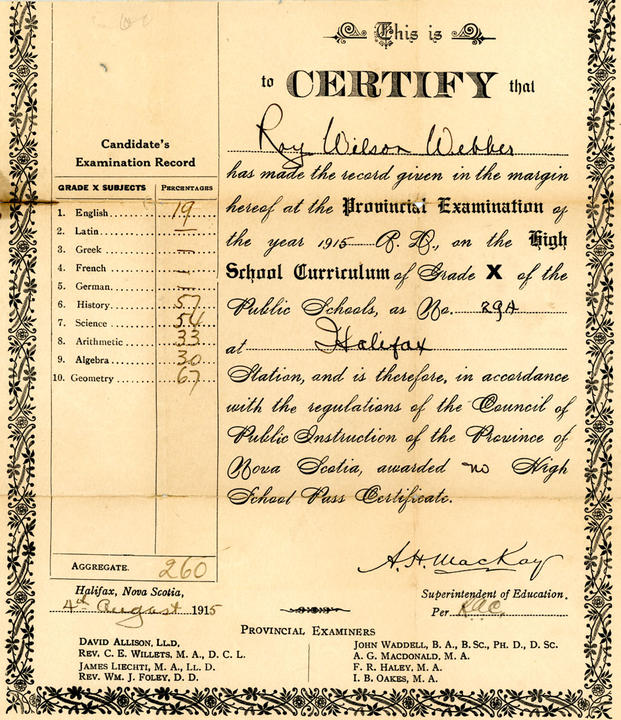 This is
to CERTIFY that
Roy Wilson Webber
has made the record given in the margin
hereof at the Provincial Examination of
the year 1915 A. D., on the High
School Curriculum of Grade X of the
Public Schools, as No. 29A
at Halifax
Station, and is therefore, in accordance
with the regulations of the Council of
Public Instruction of the Province of
Nova Scotia, awarded no High
School Pass Certificate.
Candidate's
Examination Record
GRADE X SUBJECTS PERCENTAGES
1. English 19
2. Latin —
3. Greek —
4. French —
5. German —
6. History 57
7. Science 54
8. Arithmetic 33
9. Algebra 30
10. Geometry 67
AGGREGATE. 260
Halifax, Nova Scotia,
4th August 1915
A. H. MacKay
Superintendent of Education.
Per
PROVINCIAL EXAMINERS
DAVID ALLISON, LL.D.
REV. C. E. WILLETS, M. A., D. C. L.
JAMES LIECHTI, M. A., LL. D.
REV. WM. J. FOLEY, D. D.
JOHN WADDELL, B. A., B. SC., PH. D., D. SC.
A. G. MACDONALD, M. A.
F. R. HALEY, M. A.
I. B. OAKES, M. A.